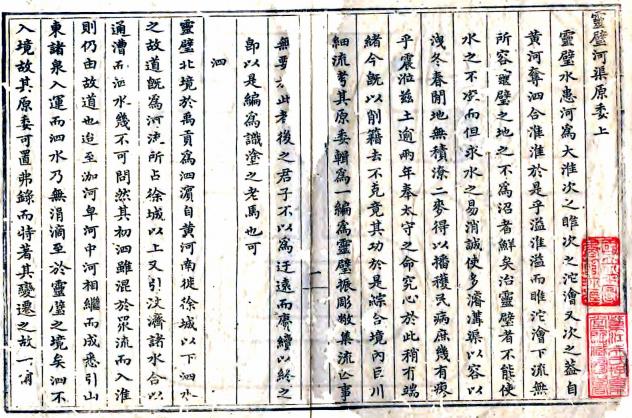 靈璧河渠原委上
靈璧水患河為大淮次之睢次之沱澮又次之蓋自
黃河奪泗合淮淮於是乎溢淮溢而睢沱澮下流無
所容靈璧之地之不為沼者鮮矣治靈璧者不能使
水之不來而但求水之易消誠使多濬溝渠以容以
洩冬春閒地無積潦二麥得以播穫民病庶幾有瘳
乎震涖茲土逾兩年奉太守之命究心於此稍有端
緒今既以削籍去不克竟其功於是綜合境內巨川
細流考其原委輯為一編為靈璧振彫敝集流亡事
無要於此者後之君子不以為迂遠而賡續以終之
即以是編為識塗之老馬也可
泗
靈璧北境於禹貢為泗濱自黃河南徙徐城以下泗水
之故道既為河流所占徐城以上又引汶濟諸水合以
通漕而泗水幾不可問然其初泗雖混於眾流而入淮
則仍由故道也迨至泇河皁河中河相繼而成悉引山
東諸泉入運而泗水乃無涓滴至於靈璧之境矣泗不
入境故其原委可置弗錄而特著其變遷之故一